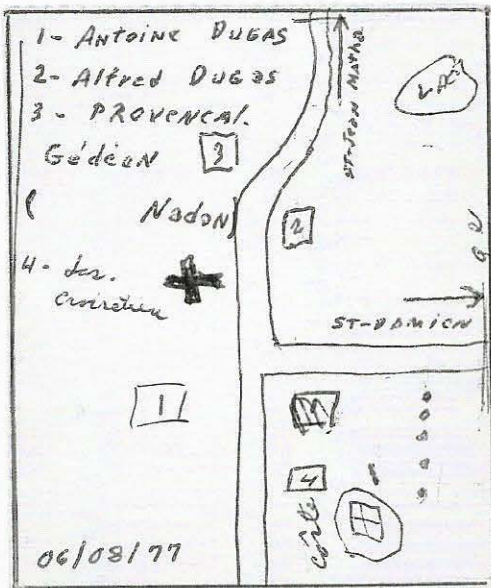 1- Antoine DUGAS
2- Alfred DUGAS
3- PROVENCAL.
Gédéon 3
( Nadon)
4- Jos.
ST-Jean Matha
2
ST-DAMIEN
1
4
Côte
06/08/77